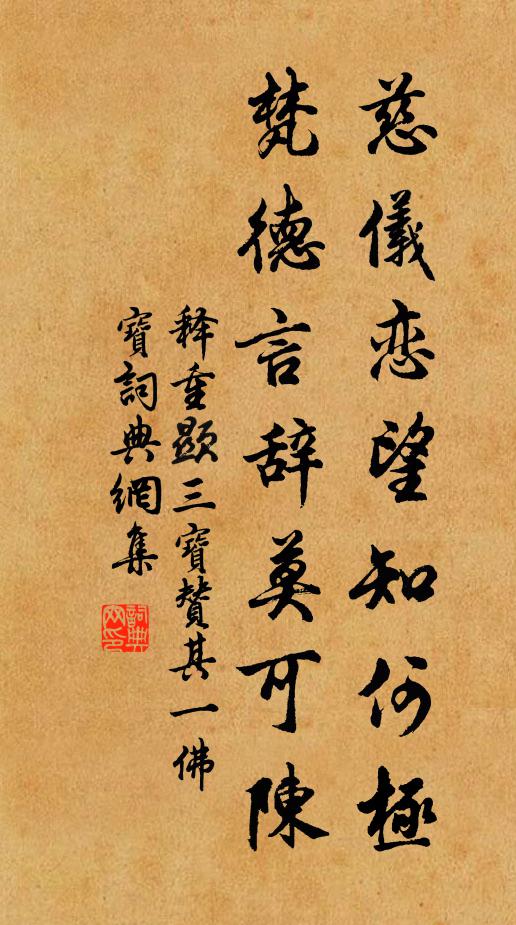 慈儀恋望知何極
梵德言辞莫可陳
释重顯三寶贊其一佛
寶詞典網集
詞典网印